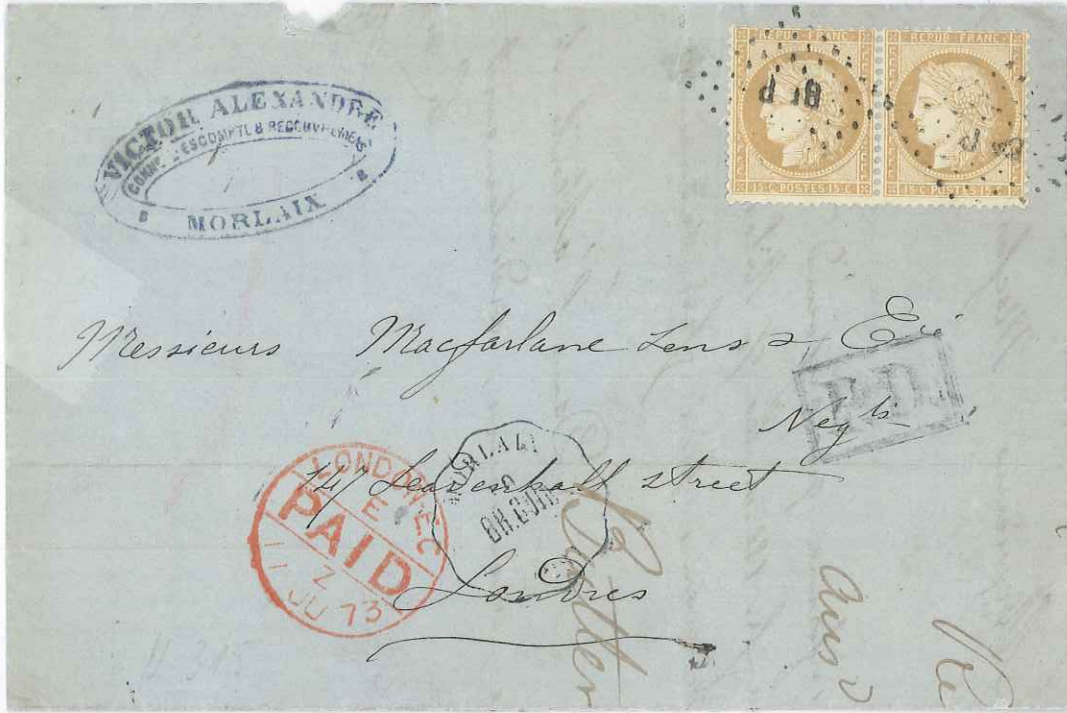 VICTOR ALEXANDRE
COMM. ESCOMPTE & RECOUVREMENTS
MORLAIX
REPUB. FRANC.
15 C. POSTES 15 C.
REPUB. FRANC.
15 C. POSTES 15
Messieurs Macfarlane Sons & Cie
Negts
P.D.
147 Leadenhall street
Londres
LONDON E.C
E
PAID
Z
11
JU 73
MORLAI